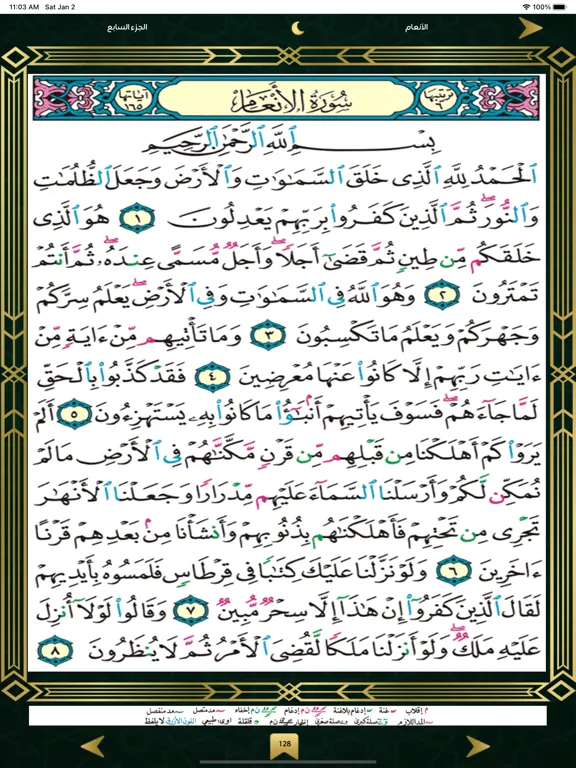 11:03 AM  Sat Jan 2
100%
الجزء السابع
الأنعام
ترتيبها ٦ سُورَةُ الأَنْعَام آياتها ١٦٥
بِسْمِ ٱللَّهِ ٱلرَّحْمَٰنِ ٱلرَّحِيمِ
ٱلْحَمْدُ لِلَّهِ ٱلَّذِى خَلَقَ ٱلسَّمَٰوَٰتِ وَٱلْأَرْضَ وَجَعَلَ ٱلظُّلُمَٰتِ
وَٱلنُّورَ ۖ ثُمَّ ٱلَّذِينَ كَفَرُوا۟ بِرَبِّهِمْ يَعْدِلُونَ ١ هُوَ ٱلَّذِى
خَلَقَكُم مِّن طِينٍ ثُمَّ قَضَىٰٓ أَجَلًا ۖ وَأَجَلٌ مُّسَمًّى عِندَهُۥ ۖ ثُمَّ أَنتُمْ
تَمْتَرُونَ ٢ وَهُوَ ٱللَّهُ فِى ٱلسَّمَٰوَٰتِ وَفِى ٱلْأَرْضِ ۖ يَعْلَمُ سِرَّكُمْ
وَجَهْرَكُمْ وَيَعْلَمُ مَا تَكْسِبُونَ ٣ وَمَا تَأْتِيهِم مِّنْ ءَايَةٍ مِّنْ
ءَايَٰتِ رَبِّهِمْ إِلَّا كَانُوا۟ عَنْهَا مُعْرِضِينَ ٤ فَقَدْ كَذَّبُوا۟ بِٱلْحَقِّ
لَمَّا جَآءَهُمْ ۖ فَسَوْفَ يَأْتِيهِمْ أَنۢبَٰٓؤُا۟ مَا كَانُوا۟ بِهِۦ يَسْتَهْزِءُونَ ٥ أَلَمْ
يَرَوْا۟ كَمْ أَهْلَكْنَا مِن قَبْلِهِم مِّن قَرْنٍ مَّكَّنَّٰهُمْ فِى ٱلْأَرْضِ مَا لَمْ
نُمَكِّن لَّكُمْ وَأَرْسَلْنَا ٱلسَّمَآءَ عَلَيْهِم مِّدْرَارًا وَجَعَلْنَا ٱلْأَنْهَٰرَ
تَجْرِى مِن تَحْتِهِمْ فَأَهْلَكْنَٰهُم بِذُنُوبِهِمْ وَأَنشَأْنَا مِنۢ بَعْدِهِمْ قَرْنًا
ءَاخَرِينَ ٦ وَلَوْ نَزَّلْنَا عَلَيْكَ كِتَٰبًا فِى قِرْطَاسٍ فَلَمَسُوهُ بِأَيْدِيهِمْ
لَقَالَ ٱلَّذِينَ كَفَرُوٓا۟ إِنْ هَٰذَآ إِلَّا سِحْرٌ مُّبِينٌ ٧ وَقَالُوا۟ لَوْلَآ أُنزِلَ
عَلَيْهِ مَلَكٌ ۖ وَلَوْ أَنزَلْنَا مَلَكًا لَّقُضِىَ ٱلْأَمْرُ ثُمَّ لَا يُنظَرُونَ ٨
م إقلاب غنة إدغام بلاغنة ن م إدغام ن م إخفاء مد متصل مد منفصل
المد اللازم صلة كبرى صلة صغرى إظهار ن م قلقلة اوى طبيعي اللون الأزرق لا يلفظ
128